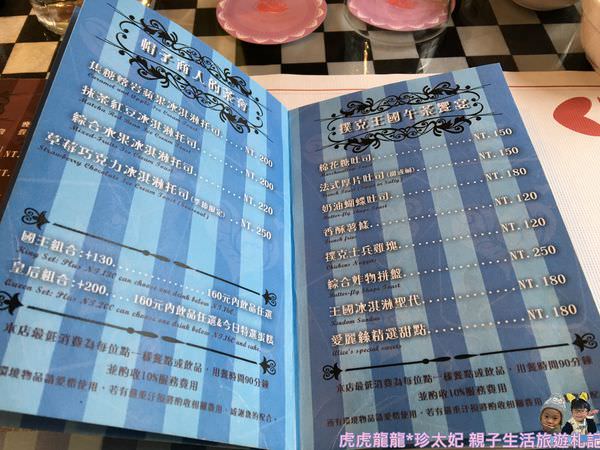 帽子商人的茶會
焦糖熔岩蘋果冰淇淋托司.....NT. 200
抹茶紅豆冰淇淋托司.....NT. 200
綜合水果冰淇淋托司.....NT. 220
草莓巧克力冰淇淋托司(季節限定).....NT. 250
Strawberry Chocolate Ice Cream Toast (Seasonal)
國王組合:+130......160元內飲品任選
King Set: Plus NT.130 can choose one drink below NT.160.
皇后組合:+200......160元內飲品任選&今日特選蛋糕
Queen Set: Plus NT.200 can choose one drink below NT.160 and cake.
本店最低消費為每位點一樣餐點或飲品，用餐時間90分鐘
並酌收10%服務費用
環境物品請愛惜使用，若有嚴重汙損將酌收相關費用，感謝您的配合。
撲克王國午茶饗宴
棉花糖吐司.....NT. 150
法式厚片吐司(甜或鹹).....NT. 150
奶油蝴蝶吐司.....NT. 120
Butter-fly Shape Toast
香酥薯條.....NT. 120
French fries
撲克士兵雞塊.....NT. 120
Chickens Nuggets
綜合炸物拼盤.....NT. 250
Butter-fly Shape Toast
王國冰淇淋聖代.....NT. 180
Kindom Sundae
愛麗絲精選甜點.....NT. 180
Alice's special sweets
本店最低消費為每位點一樣餐點或飲品，用餐時間90分鐘
並酌收10%服務費用
所有環境物品請愛惜使用，若有嚴重汙損將酌收相關費用
虎虎龍龍*珍太妃 親子生活旅遊札記